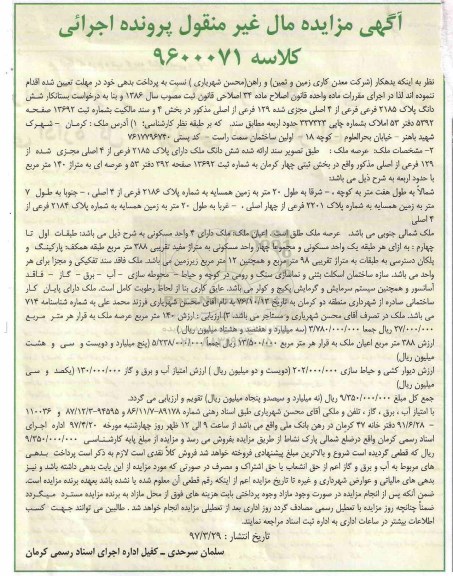 آگهی مزایده مال غیر منقول پرونده اجرائی
کلاسه ۹۶۰۰۰۷۱
نظر به اینکه بدهکار (شرکت معدن کاری زمین و ثمین) و راهن(محسن شهریاری ) نسبت به پرداخت بدهی خود در مهلت تعیین شده اقدام
ننموده اند لذا در اجرای مقررات ماده واحده قانون اصلاح ماده ۳۴ اصلاحی قانون ثبت مصوب سال ۱۳۸۶ و بنا به درخواست بستانکار شش
دانگ پلاک ۲۱۸۵ فرعی فرعی از ۴ اصلی مجزی شده ۱۲۹ فرعی از اصلی مذکور در بخش ۴ و سند مالکیت بشماره ثبت ۱۳۶۹۲ صفحه
۵۳۹۲ دفتر ۵۳ املاک بشماره چاپی ۳۳۷۳۲۳ حدود اربعه مطابق سند. که بر طبقه نظر کارشناسی: ۱) آدرس ملک : کرمان - شهرک
شهید باهنر - خیابان بحرالعلوم - کوچه ۱۸ - اولین ساختمان سمت راست - کد پستی ۷۶۱۷۷۹۶۷۴۰
۲- مشخصات ملک: عرصه ملک : طبق تصویر سند ارائه شده شش دانگ ملک دارای پلاک ۲۱۸۵ فرعی از ۴ اصلی مجزی شده از
۱۲۹ فرعی از اصلی مذکور واقع در بخش ثبتی چهار کرمان به شماره ثبت ۱۳۶۹۲ صفحه ۳۹۲ دفتر ۵۳ و عرصه ای به متراژ ۱۴۰ متر مربع
با حدود اربعه به شرح ذیل می باشد:
شمالاً به طول هفت متر به کوچه ، - شرقا به طول ۲۰ متر به زمین همسایه به شماره پلاک ۲۱۸۶ فرعی از ۴ اصلی ، - جنوبا به طول ۷
متر به زمین همسایه به شماره پلاک ۲۲۰۱ فرعی از چهار اصلی ، - غربا به طول ۲۰ متر به زمین همسایه به شماره پلاک ۲۱۸۴ فرعی از
۴ اصلی
ملک شمالی جنوبی می باشد. عرصه ملک طلق است. اعیان ملک: ملک دارای ۴ واحد مسکونی به شرح ذیل می باشد: طبقات اول تا
چهارم : به ازای هر طبقه یک واحد مسکونی و مجموعا چهار واحد مسکونی به متراژ مفید تقریبی ۳۸۸ متر مربع طبقه همکف: پارکینگ و
پلکان دسترسی به طبقات به متراژ تقریبی ۹۸ متر مربع و همچنین ۱۲ متر مربع زیرزمین می باشد. ملک فاقد سند تفکیکی و مجزا برای هر
واحد می باشد. سازه ساختمان اسکلت بتنی و نماسازی سنگ و رومی در کوچه و حیاط - محوطه سازی - آب - برق - گاز - فاقد
آسانسور و همچنین سیستم سرمایش و گرمایش پکیج و کولر می باشد. عایق کاری بنا از لحاظ رطوبت کامل است. ملک دارای پایان کار
ساختمانی صادره از شهرداری منطقه دو کرمان به تاریخ ۷۶/۱۰/۱۳ به نام آقای محسن شهریاری فرزند محمد علی به شماره شناسنامه ۷۱۴
می باشد. ملک در تصرف آقای محسن شهریاری و مستاجر می باشد. ۳) ارزیابی : ارزش ۱۴۰ متر مربع عرصه ملک به قرار هر متر مربع
۲۷/۰۰۰/۰۰۰ ریال جمعا ۳/۷۸۰/۰۰۰/۰۰۰ (سه میلیارد و هفتصد و هشتاد میلیون ریال )
ارزش ۳۸۸ متر مربع اعیان ملک به قرار هر متر مربع ۱۳/۵۰۰/۰۰۰ ریال جمعا ۵/۲۳۸/۰۰۰/۰۰۰ (پنج میلیارد و دویست و سی و هشت
میلیون ریال)
ارزش دیوار کشی و حیاط سازی ۲۰۲/۰۰۰/۰۰۰ (دویست و دو میلیون ریال ) ارزش امتیاز آب و برق و گاز ۱۳۰/۰۰۰/۰۰۰ (یکصد و سی
میلیون ریال)
جمع کل مبلغ ۹/۳۵۰/۰۰۰/۰۰۰ ریال (نه میلیارد و سیصدو پنجاه میلیون ریال) تقویم و ارزیابی می گردد.
با امتیاز آب ، برق ، گاز ، تلفن و ملکی آقای محسن شهریاری طبق اسناد رهنی شماره ۸۹۱۷۸-۸۶/۱۱/۷ و ۹۴۵۹۵-۸۷/۱۲/۳ و ۱۱۰۰۳۶
- ۹۱/۶/۲۸ دفتر خانه ۴۷ کرمان در رهن بانک ملی واقع می باشد از ساعت ۹ الی ۱۲ ظهر روز چهارشنبه مورخه ۹۷/۴/۲۰ اداره اجرای
اسناد رسمی کرمان واقع درضلع شمالی پارک نشاط از طریق مزایده بفروش می رسد و مزایده از مبلغ پایه کارشناسی ۹/۳۵۰/۰۰۰/۰۰۰
ریال که قطعی گردیده است شروع و بالاترین مبلغ پیشنهادی فروخته خواهد شد فروش کلاً نقدی است لازم به ذکر است پرداخت بدهی
های مربوط به آب و برق و گاز اعم از حق انشعاب یا حق اشتراک و مصرف در صورتی که مورد مزایده از این بابت بدهی داشته باشد و نیز
بدهی های مالیاتی و عوارض شهرداری و غیره تا تاریخ مزایده اعم از اینکه رقم قطعی آن معلوم شده یا نشده باشد بعهده برنده مزایده است.
ضمن آنکه پس از انجام مزایده در صورت وجود مازاد وجوه پرداختی بابت هزینه های فوق از محل مازاد به برنده مزایده مسترد میگردد
ضمناً چنانچه روز مزایده با تعطیل رسمی مصادف گردد روز اداری بعد از تعطیلی مزایده انجام خواهد شد . طالبین می توانند جهت کسب
اطلاعات بیشتر در ساعات اداری به اداره ثبت اسناد مراجعه نمایند.
تاریخ انتشار : ۹۷/۳/۲۹
سلمان سرحدی - کفیل اداره اجرای اسناد رسمی کرمان